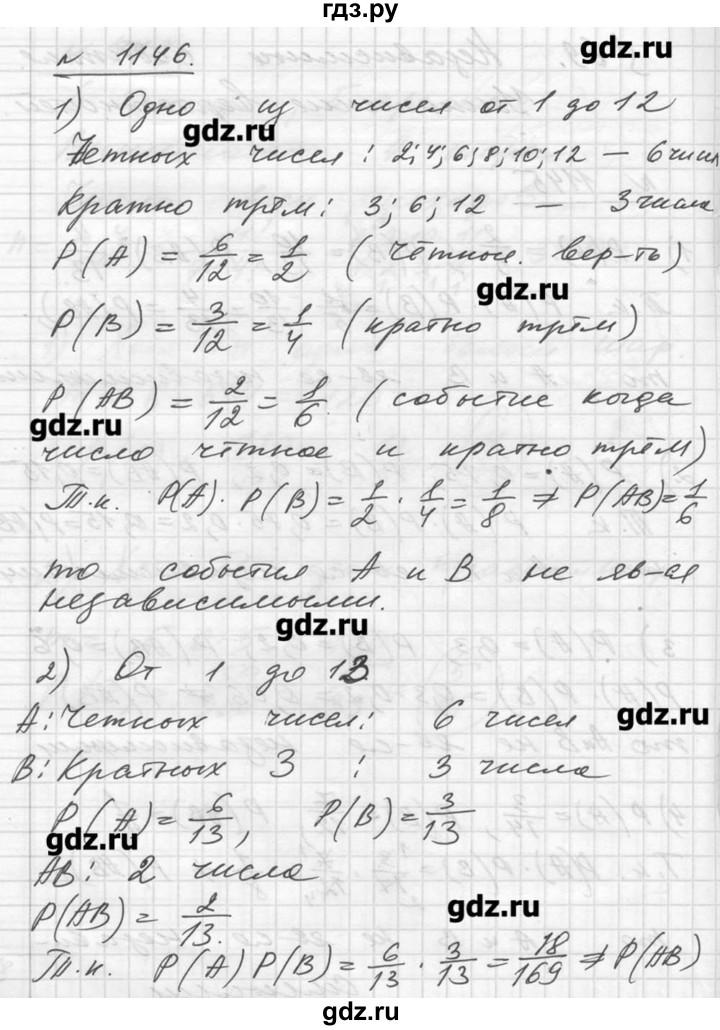 гдз.ру
№ 1146.
gdz.ru
1) Одно из чисел от 1 до 12
gdz.ru
Четных чисел: 2; 4; 6; 8; 10; 12 — 6 чисел
Кратно трём: 3; 6; 12 — 3 числа
P(A) = 6/12 = 1/2 (чётное. вер-ть)
gdz.ru
P(B) = 3/12 = 1/4 (кратно трём)
P(AB) = 2/12 = 1/6. (событие когда
gdz.ru
число чётное и кратно трём)
Т.к. P(A) · P(B) = 1/2 · 1/4 = 1/8 ≠ P(AB) = 1/6
то события A и B не яв-ся
независимыми.
gdz.ru
2) От 1 до 13
A: Четных чисел: 6 чисел
gdz.ru
B: Кратных 3 : 3 числа
P(A) = 6/13, P(B) = 3/13
gdz.ru
AB: 2 числа
P(AB) = 2/13.
gdz.ru
Т.к. P(A) P(B) = 6/13 · 3/13 = 18/169 ≠ P(AB)
gdz.ru